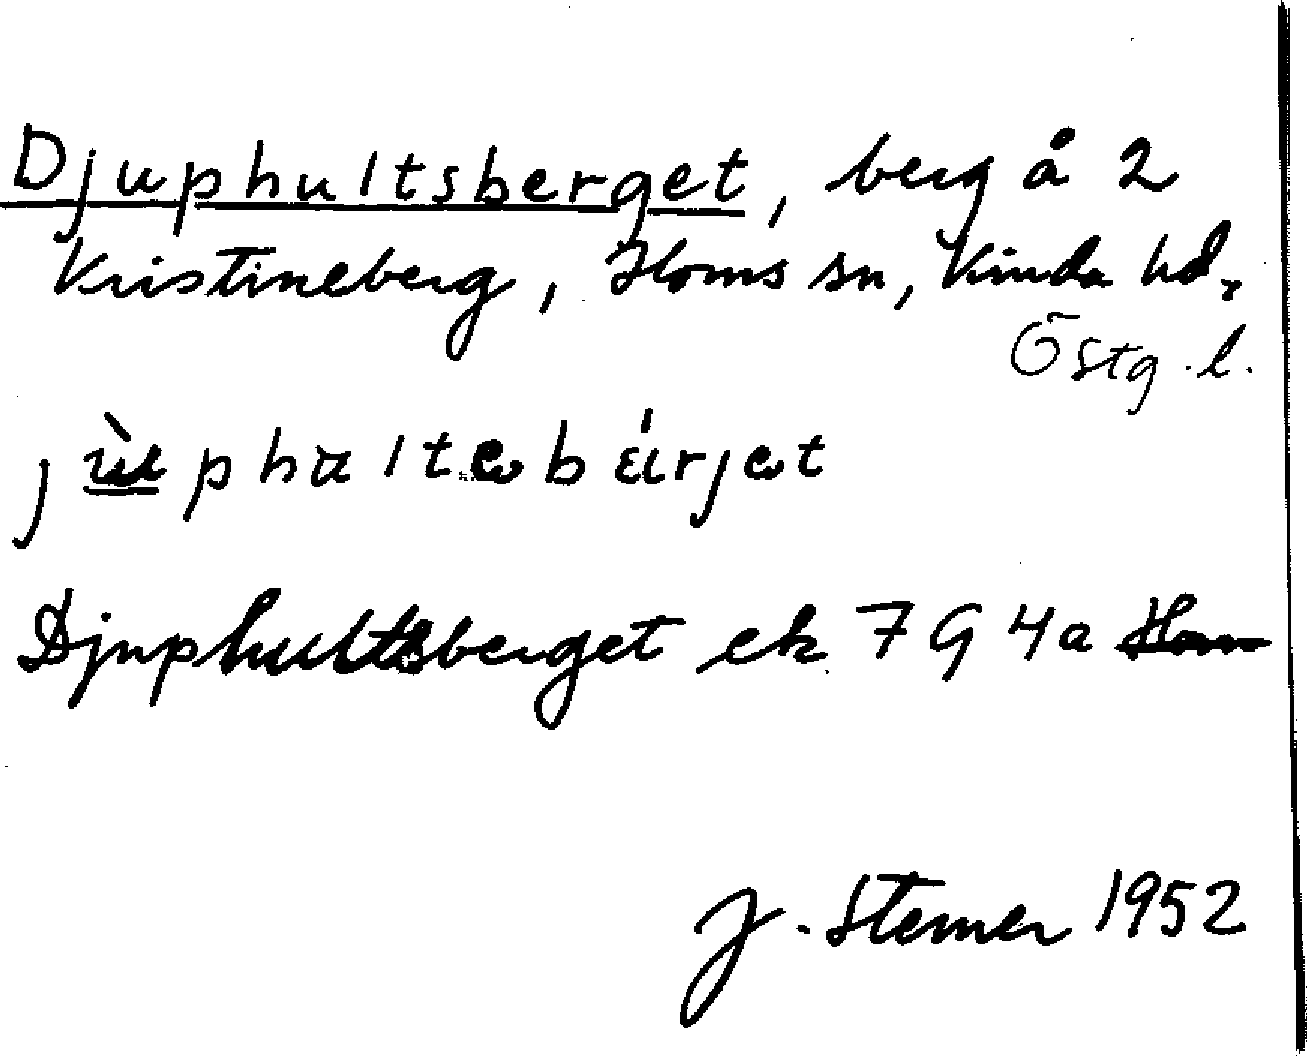 Djuphultsberget, berg å 2
Kristineberg, Horns sn, Kinda hd,
Östg.l.
Djuphultsberget ek 7G4a
J. Sterner 1952